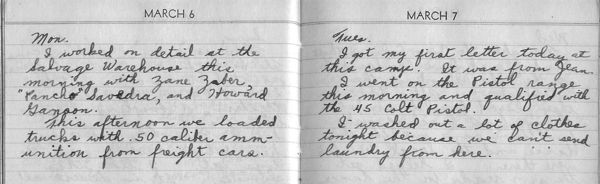 MARCH 6
Mon.
I worked on detail at the
Salvage Warehouse this
morning with Zane Zaber,
"Pancho" Savedra, and Howard
Ganson.
This afternoon we loaded
trucks with .50 caliber amm-
unition from freight cars.
MARCH 7
Tues.
I got my first letter today at
this camp. It was from Jean.
I went on the Pistol range
this morning and qualified with
the 45 Colt Pistol.
I washed out a lot of clothes
tonight because we can't send
laundry from here.